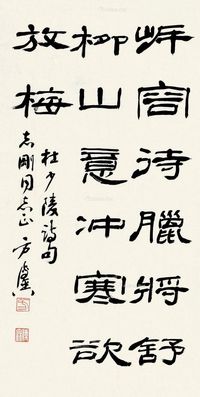 岸容待臘將舒
柳山意沖寒欲
放梅
杜少陵詩句
志剛同志正 方虞